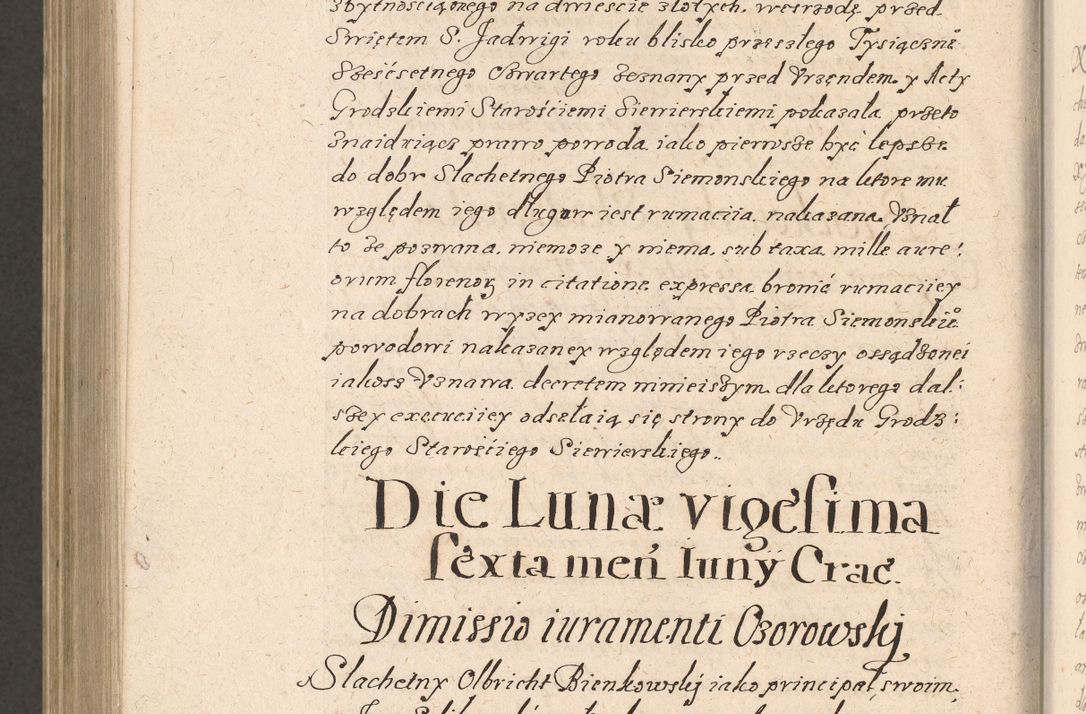 zbytnosciąonego na dwiescie złotych, wesrzodę przed
Swiętem S. Jadwigi roku blisko przeszłego Tysiączne°
Szescsetnego Czwartego zeznany przed Vrzendem y Acty
Grodzkiemi Starosciemi Siewierskiemi pokazała, przeto
znaidziącz prawo powoda iako pierwsze być lepsze
do dobr Slachetnego Piotra Siemonskiego na ktore mu
względem iego długuw iest rumaciia nakazana, Vznał
to że pozwana, niemoże y niema, sub taxa mille aure:
orum florenoꝝ in citatione expressa bronić rumaciiey
na dobrach wyżey mianowanego Piotra Siemonskie°
powodowi nakazaney względem iego rzeczy ossądzonei
iakosz Vznawa decretem ninieiszym dla ktorego dal:
szey execuciiey odsełaią się strony do Vrzędu Grodz:
kiego Starosciego Siewierskiego..
Die Lunæ vigesima
sexta meń Iunÿ Crac.
Dimissio iuramenti Ozorowskį
Slachetny Olbricht Bienkowskį iako principał swoim,